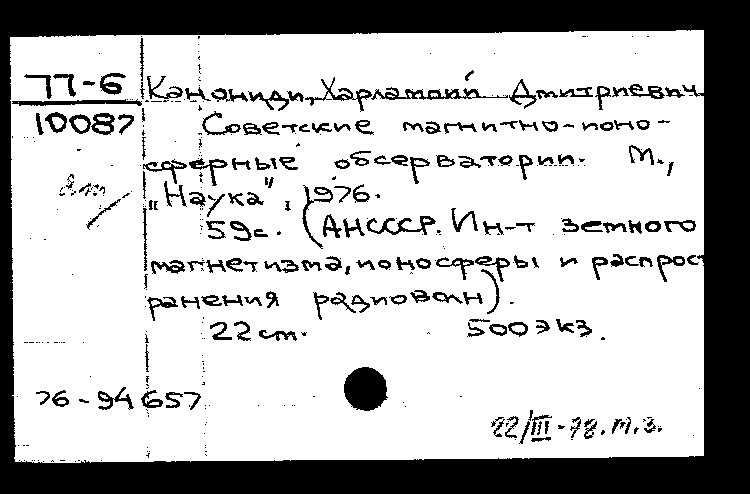 77-6 Канониди, Харлампий Дмитриевич.
10087 Советские магнитно-ионо-
сферные обсерватории. М.,
„Наука", 1976.
59с. (АНСССР. Ин-т земного
магнетизма, ионосферы и распрост
ранения радиоволн).
22 cm. 500 экз.
76-94657
22/III-78. М.З.